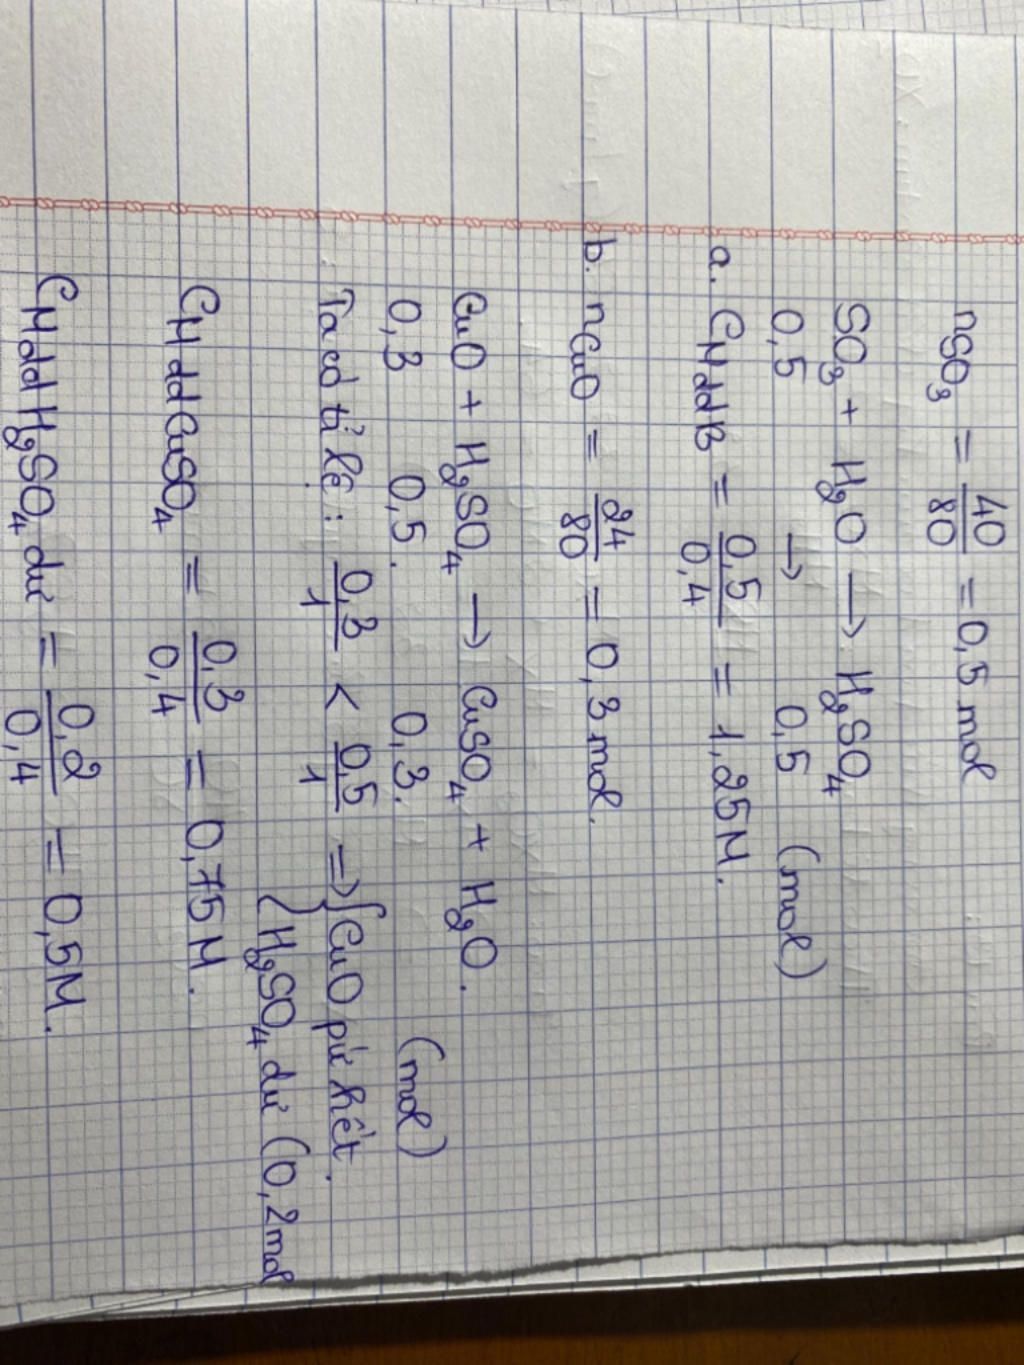 nSO₃ = 40/80 = 0,5 mol
SO₃ + H₂O → H₂SO₄
0,5 → 0,5 (mol)
a. CMddB = 0,5/0,4 = 1,25M.
b. nCuO = 24/80 = 0,3 mol.
CuO + H₂SO₄ → CuSO₄ + H₂O.
0,3 0,5. 0,3. (mol)
Ta có tỉ lệ: 0,3/1 < 0,5/1 => { CuO pứ hết.
{ H₂SO₄ dư (0,2mol
CMddCuSO₄ = 0,3/0,4 = 0,75M.
CMddH₂SO₄ dư = 0,2/0,4 = 0,5M.